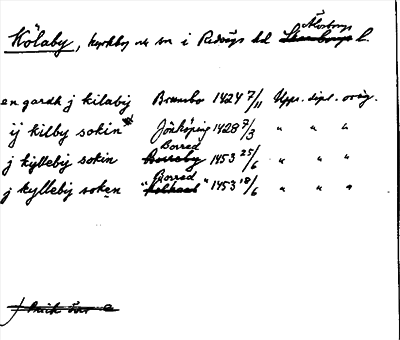 Kölaby, kyrkby o. sn i Redvägs hd Älvsborgs l.
en gardh j kilabij Brumbo 1424 7/11 Upps. dipl. orig.
ij kilby sokin Jönköping 1428 7/3 " " "
j kyllebij sokin Borred 1453 25/6 " " "
j kyllebij soken "Borred" 1453 18/6 " " "